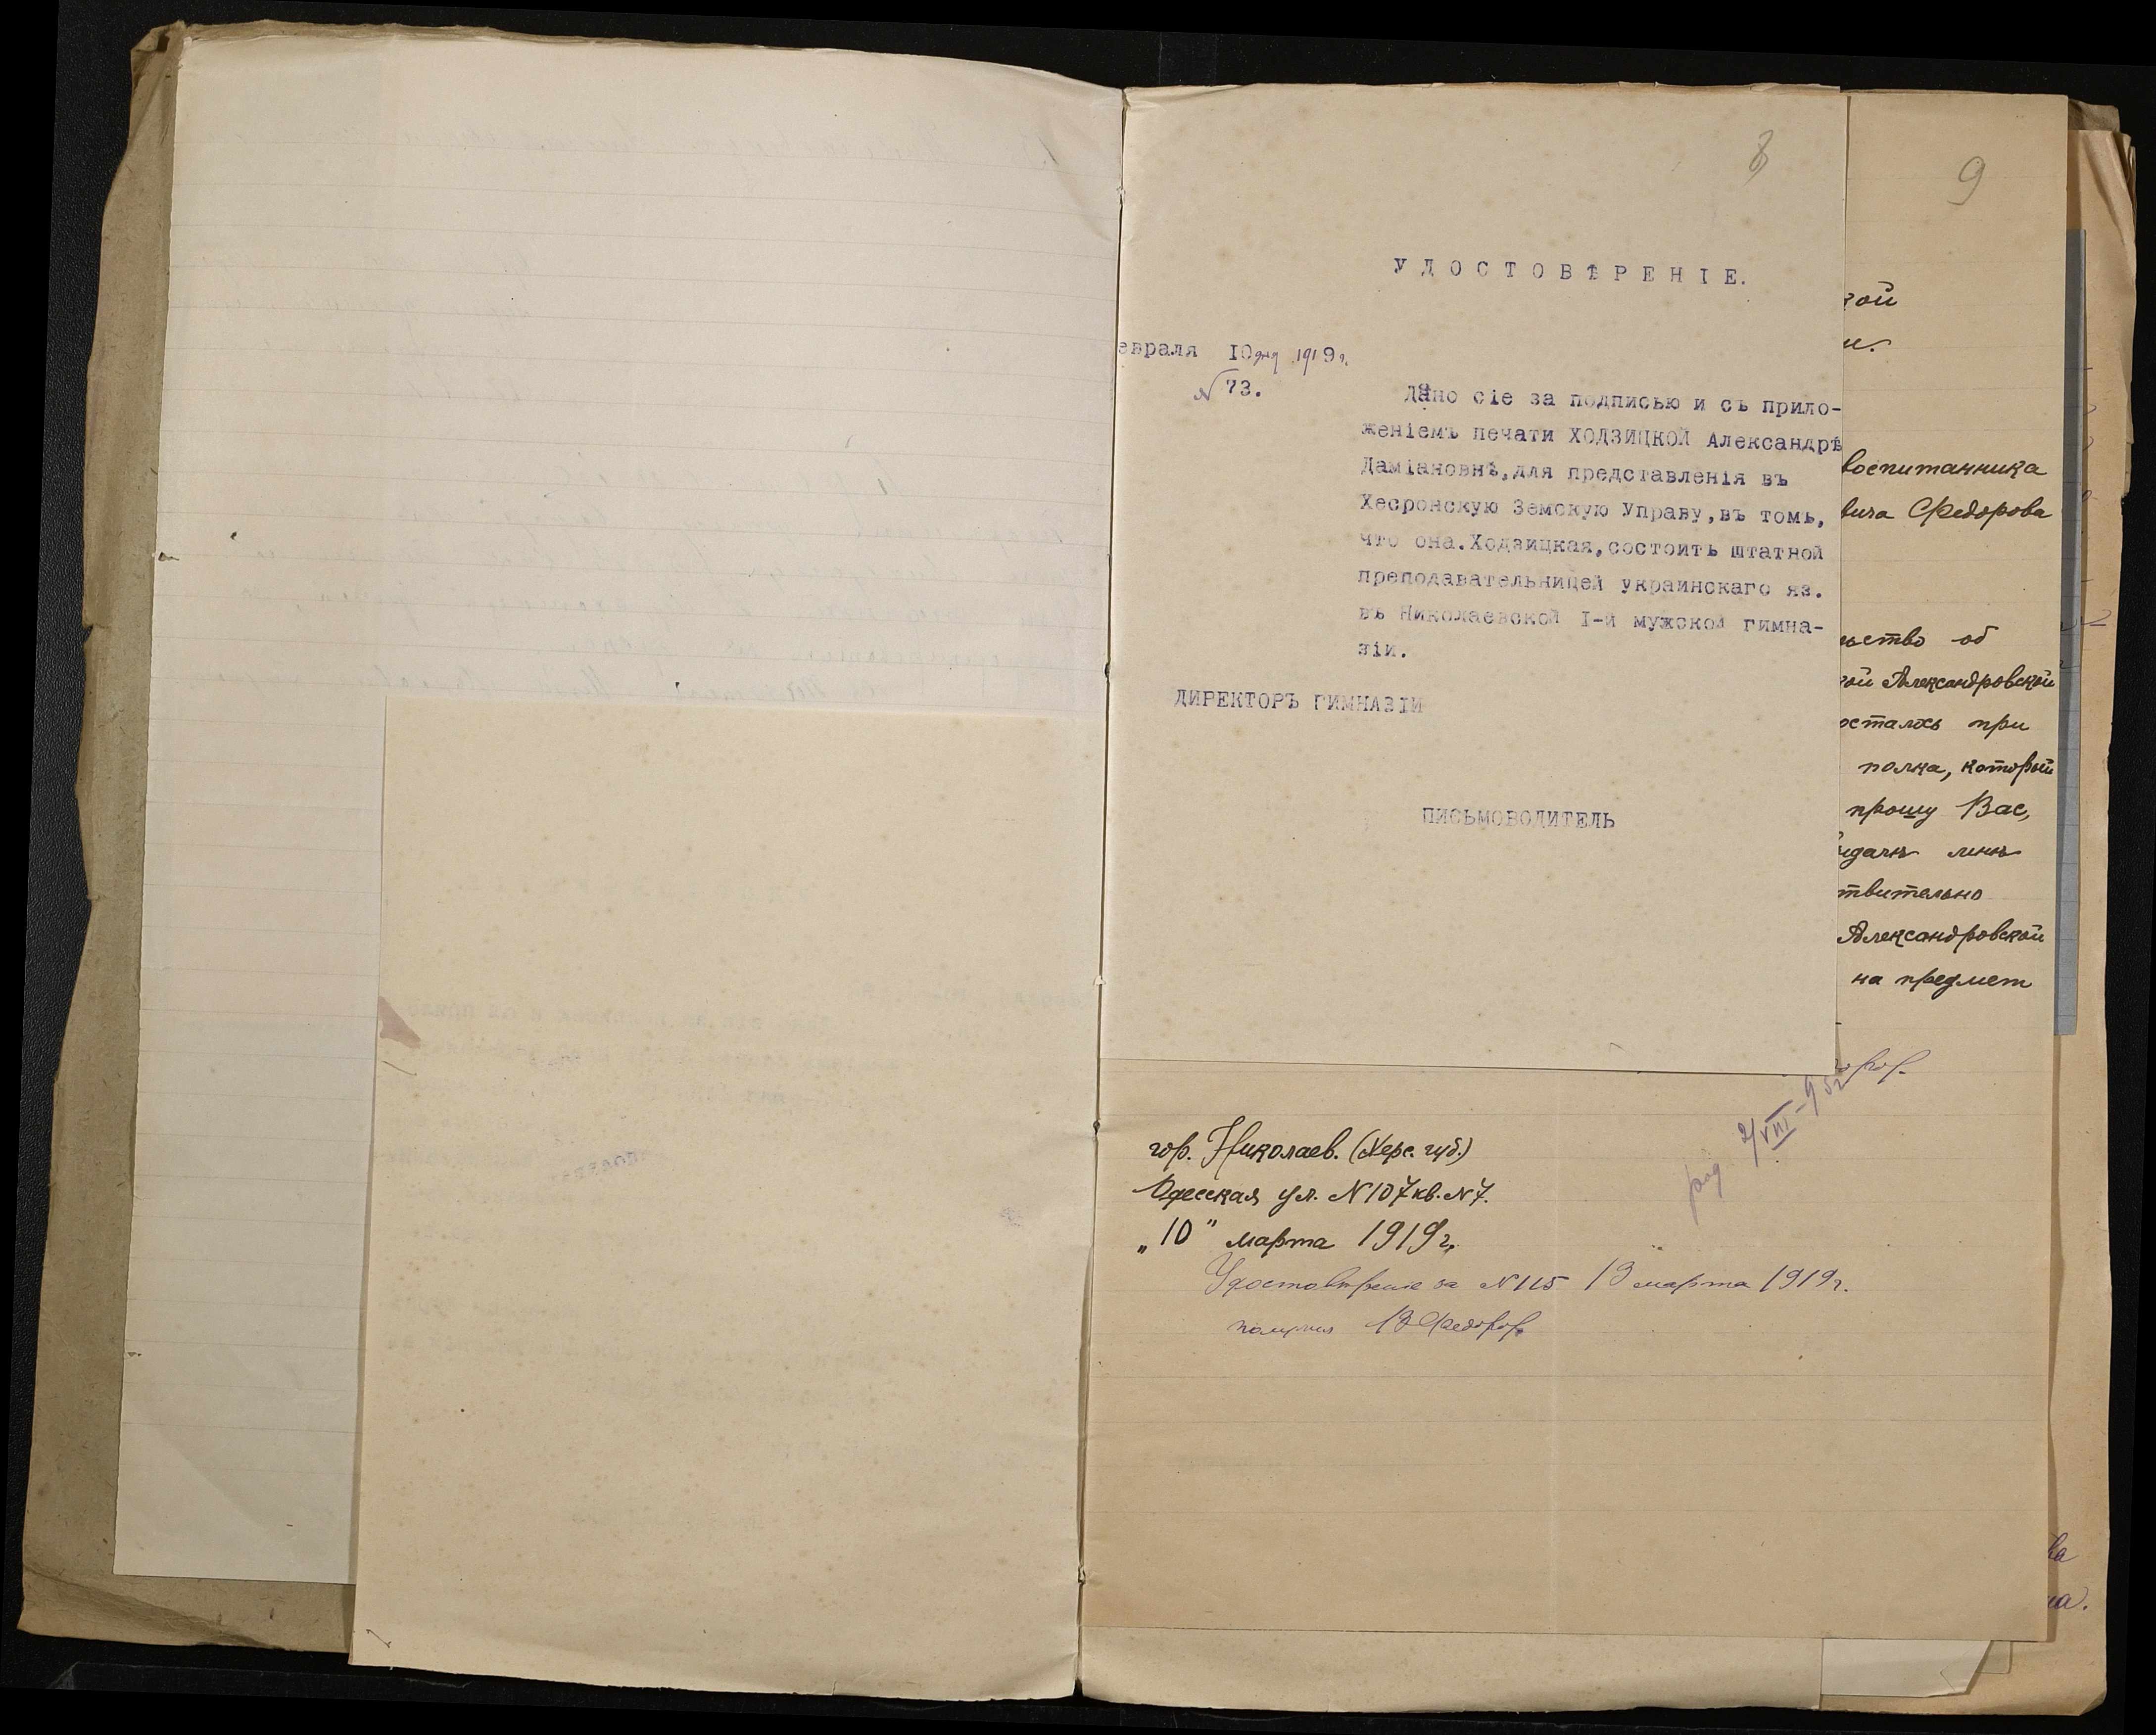 8
УДОСТОВѢРЕНІЕ.
евраля 10 дня 1919 г.
№ 73.
Дано сіе за подписью и съ прило-
женіемъ печати ХОДЗИЦКОЙ Александрѣ
Даміановнѣ,для представленія въ
Хесронскую Земскую Управу,въ томъ,
что она.Ходзицкая,состоитъ штатной
преподавательницей украинскаго яз.
въ Николаевской I-й мужской гимна-
зіи.
ДИРЕКТОРЪ ГИМНАЗІИ
ПИСЬМОВОДИТЕЛЬ
9
кой
и.
воспитанника
вича Федорова
льство об
кой Александровской
осталось при
полка, который
прошу Вас,
ыдачѣ мнѣ
твительно
Александровской
на предмет
гор. Николаев. (Херс. губ.)
Одесская ул. № 107 кв. № 7.
„10" марта 1919 г.
род 2/VIII-95 г
Удостовѣреніе за № 115 13 марта 1919 г.
получил В Федоров
ва
на.